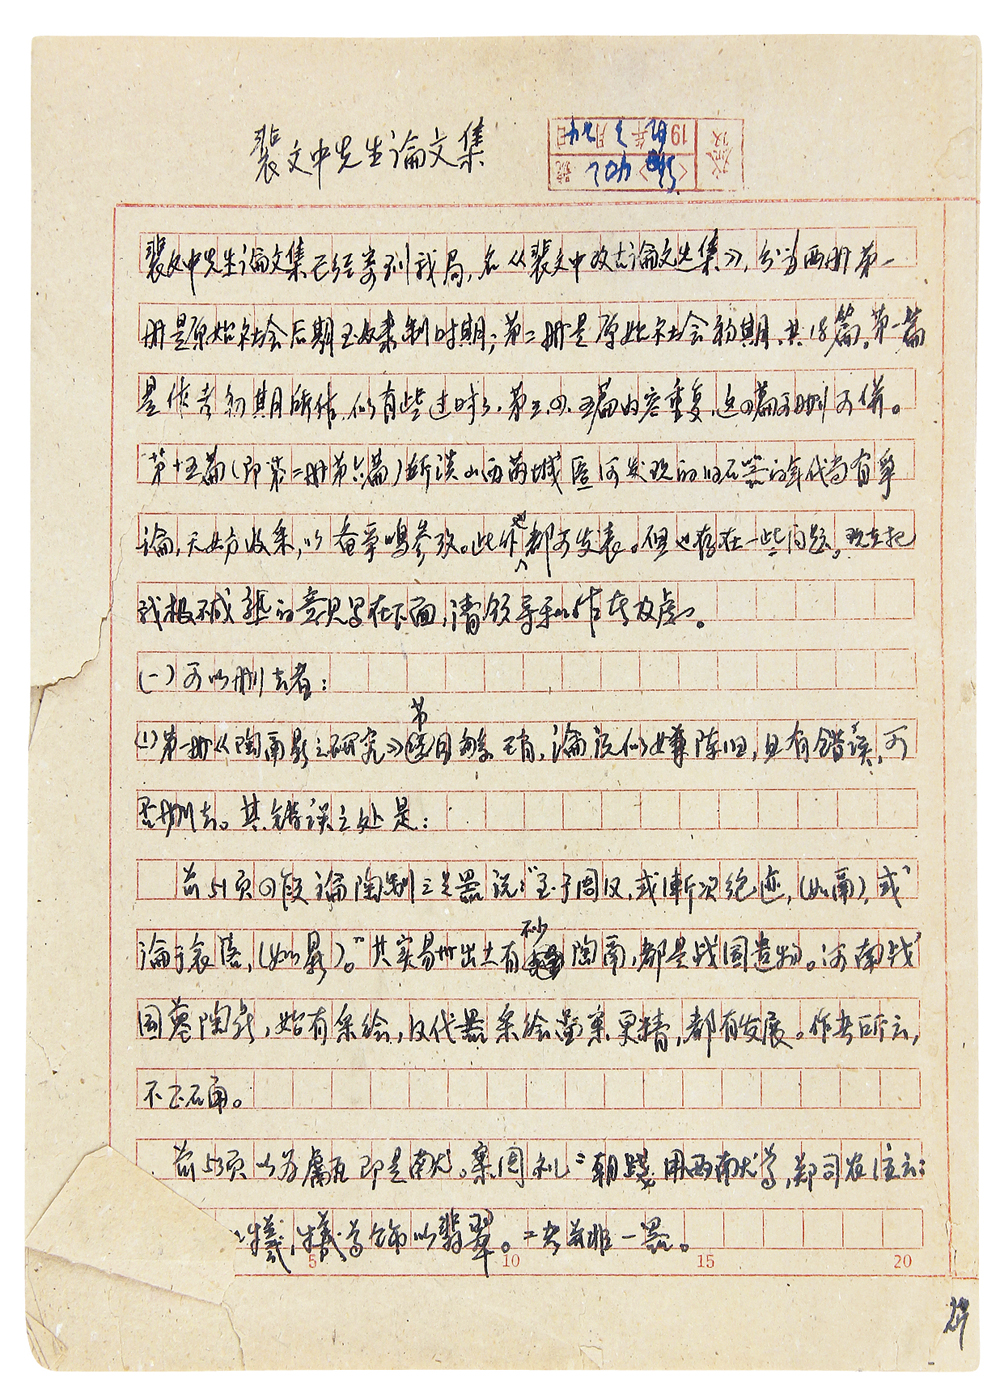 裴文中先生论文集
收发
19 82 年 3 月 24 日
号
裴文中先生论文集已经寄到我局,名《裴文中考古论文选集》,分为两册第一
册是原始社会后期至奴隶制时期;第二册是原始社会初期、共18篇。第一篇
是作者初期所作,似有些过时、第三、四、五篇内容重复,这四篇可删可併。
第十五篇(即第二册第六篇)所谈山西芮城匼河发现的旧石器的年代尚有争
论,无妨收录,以备争鸣参考。此作都可发表。但也存在一些问题。现在把
我极不成熟的意见写在下面,请领导和作者考虑。
(一)可以删去者:
(1)第一册《陶鬲鬶之研究》节目繁琐,论说似嫌陈旧,且有错误,可
否删去。其错误之处是:
前51页四段论陶制三足器说:“至于周汉,或渐次绝迹,(如鬲),或
论于衰落,(如鬶)。”其实易州出土有不少陶鬲,都是战国遗物。河南战
国墓陶器,始有彩绘,汉代器彩绘图案更精,都有发展。作者所云,
不正确。
前53页以为 即是献。案周礼:朝践用两献尊,郑司农注云:
牺,牺尊饰以翡翠。二者并非一器。
5 10 15 20